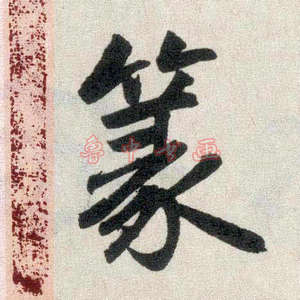 篆
鲁中书画